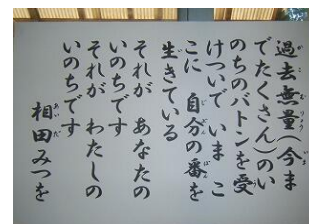 過去無量(今ま
でたくさん)のい
のちのバトンを受
けついで いま こ
こに 自分の番を
生きている
それが あなたの
いのちです
それが わたしの
いのちです
相田みつを